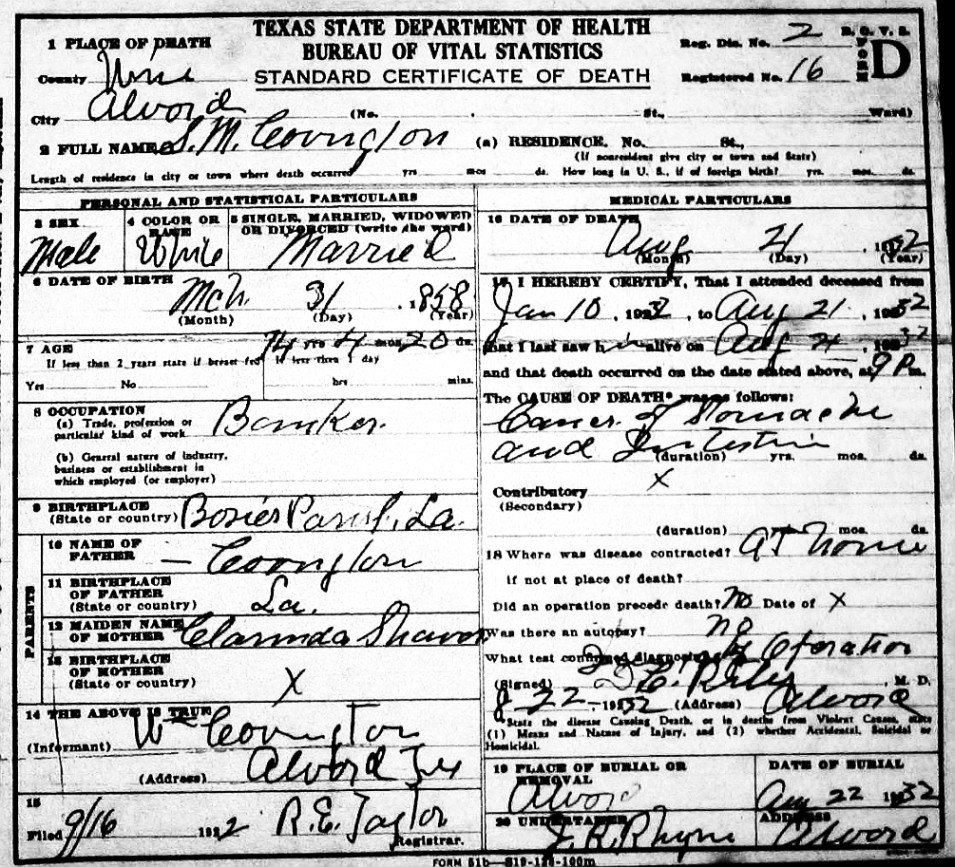 TEXAS STATE DEPARTMENT OF HEALTH
BUREAU OF VITAL STATISTICS
STANDARD CERTIFICATE OF DEATH
Reg. Dis. No. 2
Registered No. 16
B. O. V. S.
FORM D
1 PLACE OF DEATH
County Wise
City Alvord (No. St., Ward)
2 FULL NAME S. M. Covington (a) RESIDENCE, No. St.,
(If nonresident give city or town and State)
Length of residence in city or town where death occurred yrs mos ds. How long in U. S., if of foreign birth? yrs. mos. ds.
PERSONAL AND STATISTICAL PARTICULARS
3 SEX
Male
4 COLOR OR RACE
White
5 SINGLE, MARRIED, WIDOWED
OR DIVORCED (write the word)
Married
6 DATE OF BIRTH
Mch. 31 1858
(Month) (Day) (Year)
7 AGE 74 yrs 4 mos 20 ds.
If less than 2 years state if breast fed If less than 1 day
Yes No hrs mins.
8 OCCUPATION
(a) Trade, profession or
particular kind of work Banker
(b) General nature of industry,
business or establishment in
which employed (or employer)
9 BIRTHPLACE
(State or country) Bosier Parish, La.
PARENTS
10 NAME OF
FATHER – Covington
11 BIRTHPLACE
OF FATHER
(State or country) La.
12 MAIDEN NAME
OF MOTHER Clarinda
13 BIRTHPLACE
OF MOTHER
(State or country) X
14 THE ABOVE IS TRUE
(Informant) Wm Covington
(Address) Alvord Tex
15
Filed 9/16 1932 R. E. Taylor
Registrar.
MEDICAL PARTICULARS
16 DATE OF DEATH
Aug 21 1932
(Month) (Day) (Year)
17 I HEREBY CERTIFY, That I attended deceased from
Jan 10, 1932, to Aug 21, 1932
that I last saw him alive on Aug 21, 1932
and that death occurred on the date stated above, at 9 P m.
The CAUSE OF DEATH* was as follows:
Cancer of Stomache
and Intestin
(duration) yrs. mos. ds.
Contributory X
(Secondary)
(duration) yrs. mos. ds.
18 Where was disease contracted? at home
if not at place of death?
Did an operation precede death? No Date of X
Was there an autopsy? no
What test confirmed diagnosis? by Operation
(Signed) Riley, M. D.
8-22-1932 (Address) Alvord
*State the disease Causing Death, or in deaths from Violent Causes, state
(1) Means and Nature of Injury, and (2) whether Accidental, Suicidal or
Homicidal.
19 PLACE OF BURIAL OR
REMOVAL
Alvord
DATE OF BURIAL
Aug 22 1932
20 UNDERTAKER
J. R. Rhyne
ADDRESS
Alvord
FORM 51b—819-128-100m